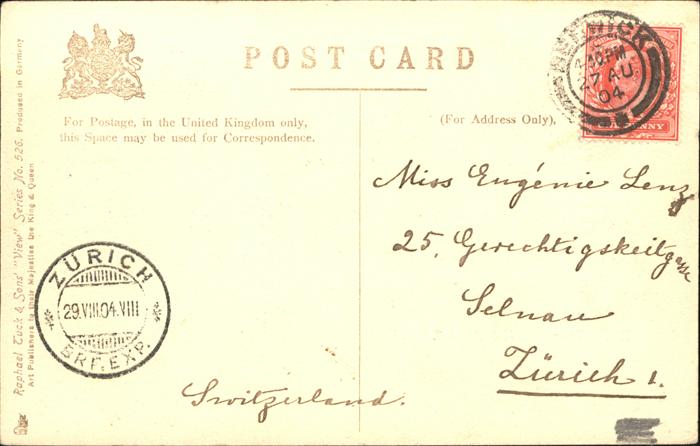 POST CARD
For Postage, in the United Kingdom only,
this Space may be used for Correspondence.
(For Address Only).
4.40 PM
27 AU
04
PENNY
Miss Eugénie Lenz
25, Gerechtigkeitgasse
Selnau
Zürich 1.
Switzerland.
ZÜRICH
29.VIII.04.VIII
BRF. EXP.
Raphael Tuck & Sons' "View" Series No. 526. Produced in Germany
Art Publishers to their Majesties the King & Queen